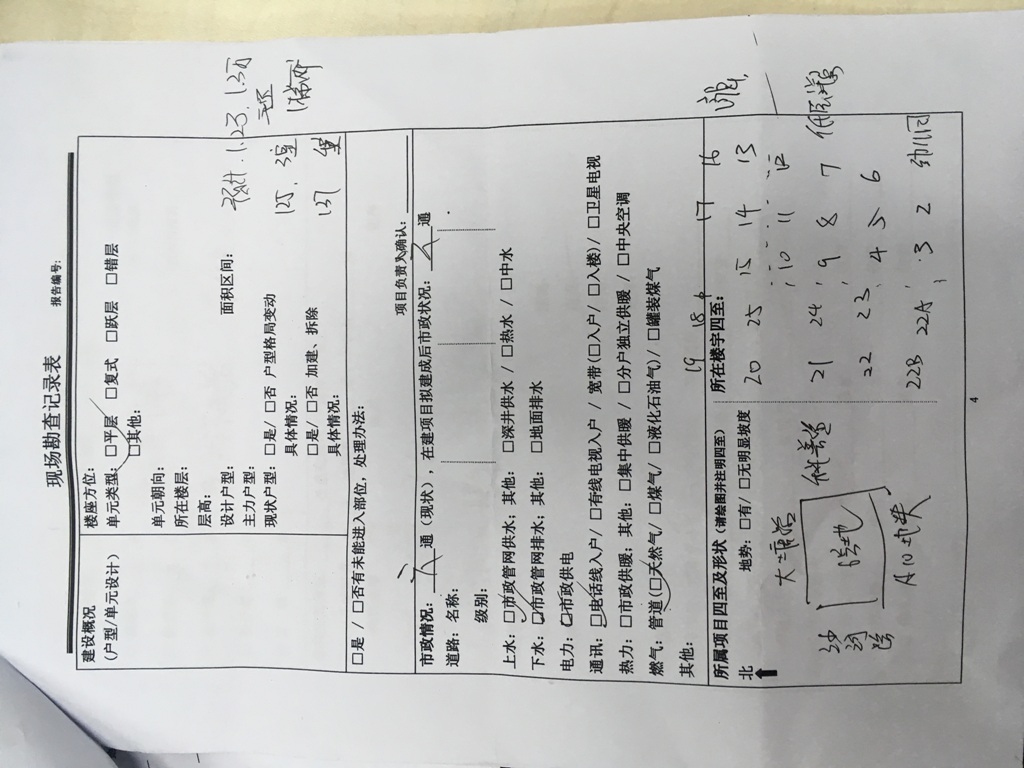 现场勘查记录表
报告编号:
建设概况
(户型/单元设计)
楼座方位:
单元类型: □平层 □复式 □跃层 □错层
□其他:
单元朝向:
所在楼层:
层高:
设计户型: 面积区间:
主力户型:
现状户型: □是/ □否 户型格局变动
具体情况:
□是/ □否 加建、拆除
具体情况:
123.137
125.
137
□是 / □否有未能进入部位, 处理办法: 项目负责人确认:
市政情况: 六 通 (现状), 在建项目拟建成后市政状况: 六 通
道路: 名称:
级别:
上水: □市政管网供水; 其他: □深井供水 / □热水 / □中水
下水: □市政管网排水; 其他: □地面排水
电力: □市政供电
通讯: □电话线入户/ □有线电视入户 / 宽带(□入户/ □入楼)/ □卫星电视
热力: □市政供暖; 其他: □集中供暖 / □分户独立供暖 / □中央空调
燃气: 管道(□天然气/ □煤气/ □液化石油气)/ □罐装煤气
其他:
所属项目四至及形状 (请绘图并注明四至)
北 地势: □有/ □无明显坡度
所在楼宇四至:
19 18 17 16
20 25 15 14 13
10 11 12
21 24 9 8 7
22 23 4 5 6
22B 22A 3 2 幼儿园
4